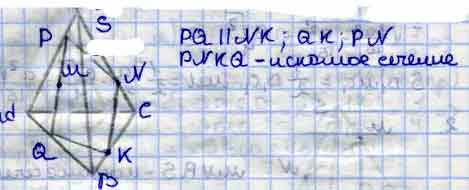 S
P
PQ || NK; QK; PN
PNKQ - искомое сечение
M
N
d
C
Q
K
B